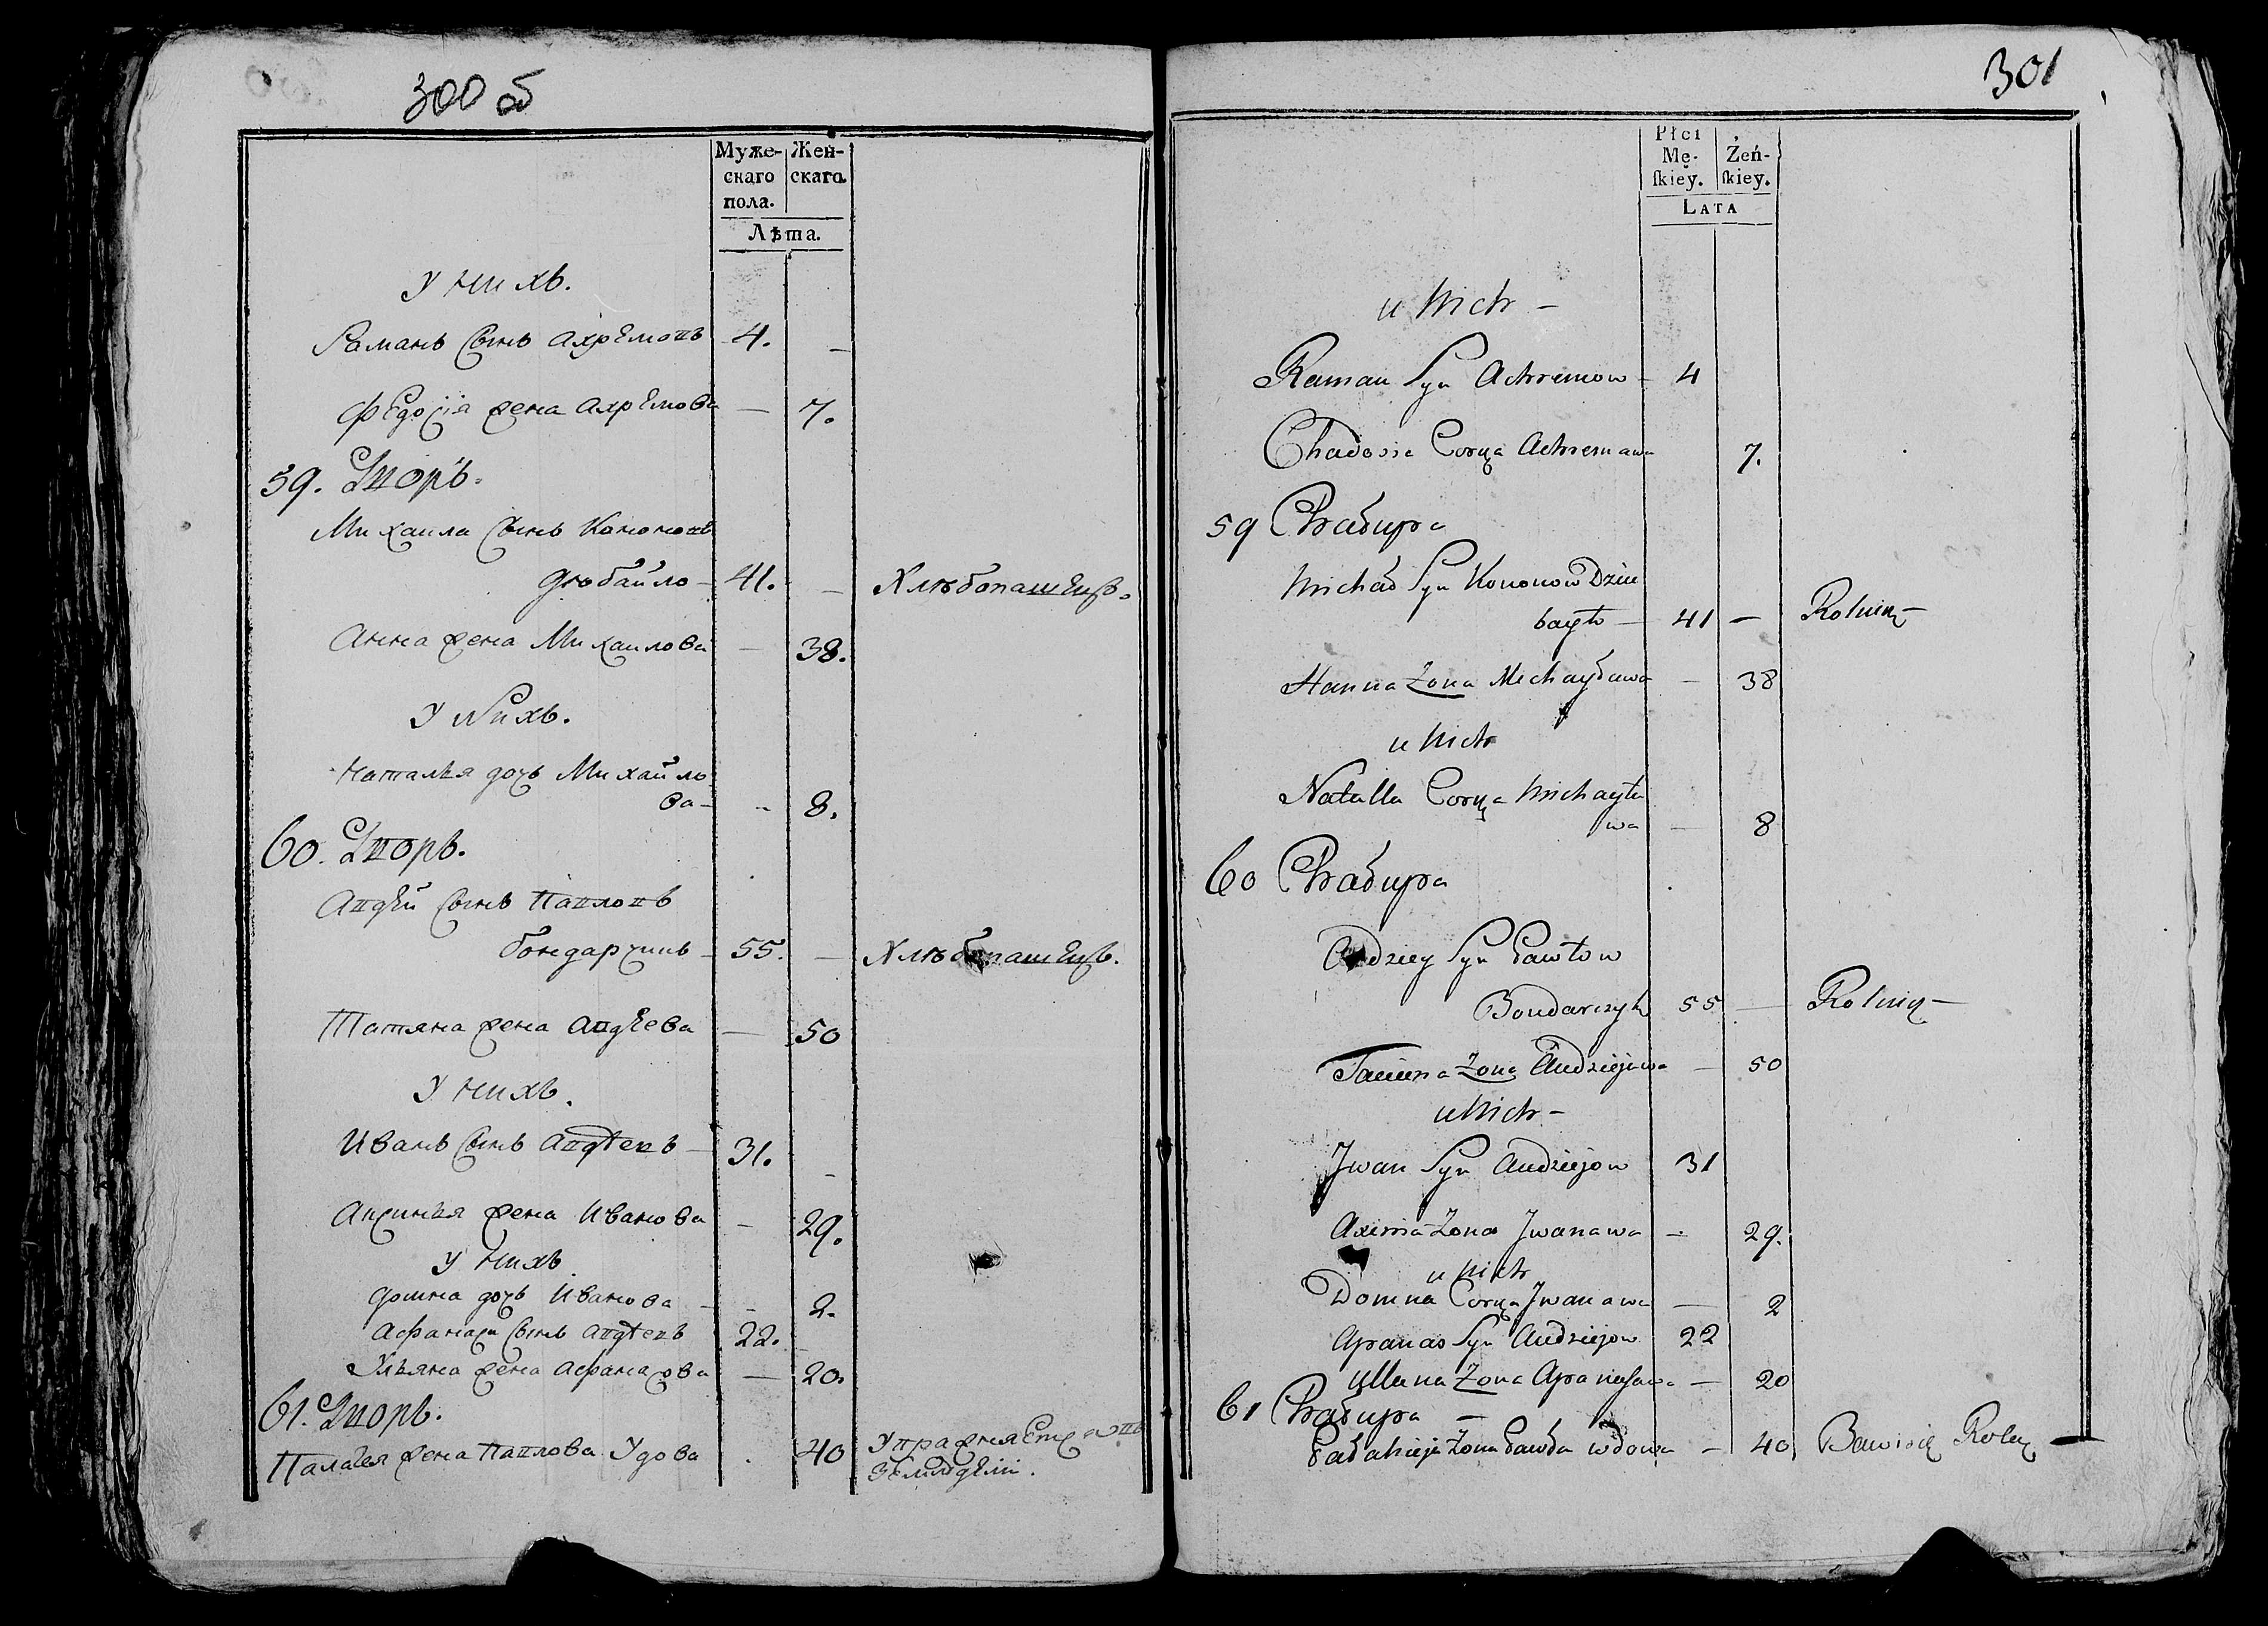 300 об
Муже-
скаго
пола.
Жен-
скаго.
Лѣта.
У нихъ.
Раманъ Сынъ Ахремовъ 4. –
Федосія жена Ахремова – 7.
59. Дворъ.
Михаила Сынъ Кононовъ
Дзюбайло – 41. – Хлѣбопашецъ.
Анна жена Михаилова – 38.
У Нихъ.
Наталья дочь Михайло
ва – – 8.
60. Дворъ.
Авдѣй Сынъ Павловъ
бондарчикъ – 55. – Хлѣбопашецъ.
Татяна жена Авдѣева – 50
У нихъ.
Иванъ Сынъ Авдѣевъ – 31. –
Аксинья жена Иванова – 29.
У нихъ
Домна дочь Иванова – – 2.
Афанаси Сынъ Авдѣевъ 22.
Ульяна жена Афанасова – 20.
61. Дворъ.
Палагея жена Павлова Удова . 40 Упражняется въ
земледѣліи.
301
Płci
Mę-
skiey.
Żeń-
skiey.
LATA
u Nich –
Raman Syn Achremow – 4
Chadosia Corka Achremawa 7.
59 Chałupa
Michał Syn Kononow Dziu
bayło – 41 – Rolnik –
Hanna Żona Michayława – 38
u Nich
Natalla Corka Michayła
wa – 8
60 Chałupa
Audziey Syn Pawłow
Bondarczyk 55 – Rolnik –
Taciana Żona Audziejewa – 50
u Nich –
Jwan Syn Audziejow 31
Axinia Żona Jwanawa – 29.
u Nich
Domna Corka Jwanawa – 2
Apanas Syn Audziejow 22
Ullana Żona Apanasawa – 20
61 Chałupa –
Pałahieja Żona Pawła wdowa – 40 Bawi się Rolą –